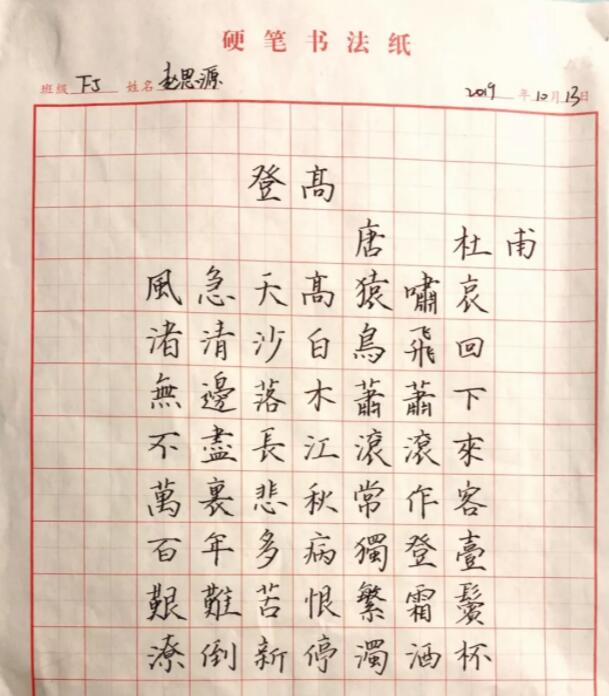 硬笔书法纸
班级 FJ 姓名 赵思源 2019年10月13日
登高
唐 杜甫
風急天高猿嘯哀
渚清沙白鳥飛回
無邊落木蕭蕭下
不盡長江滾滾來
萬裏悲秋常作客
百年多病獨登臺
艱難苦恨繁霜鬢
潦倒新停濁酒杯